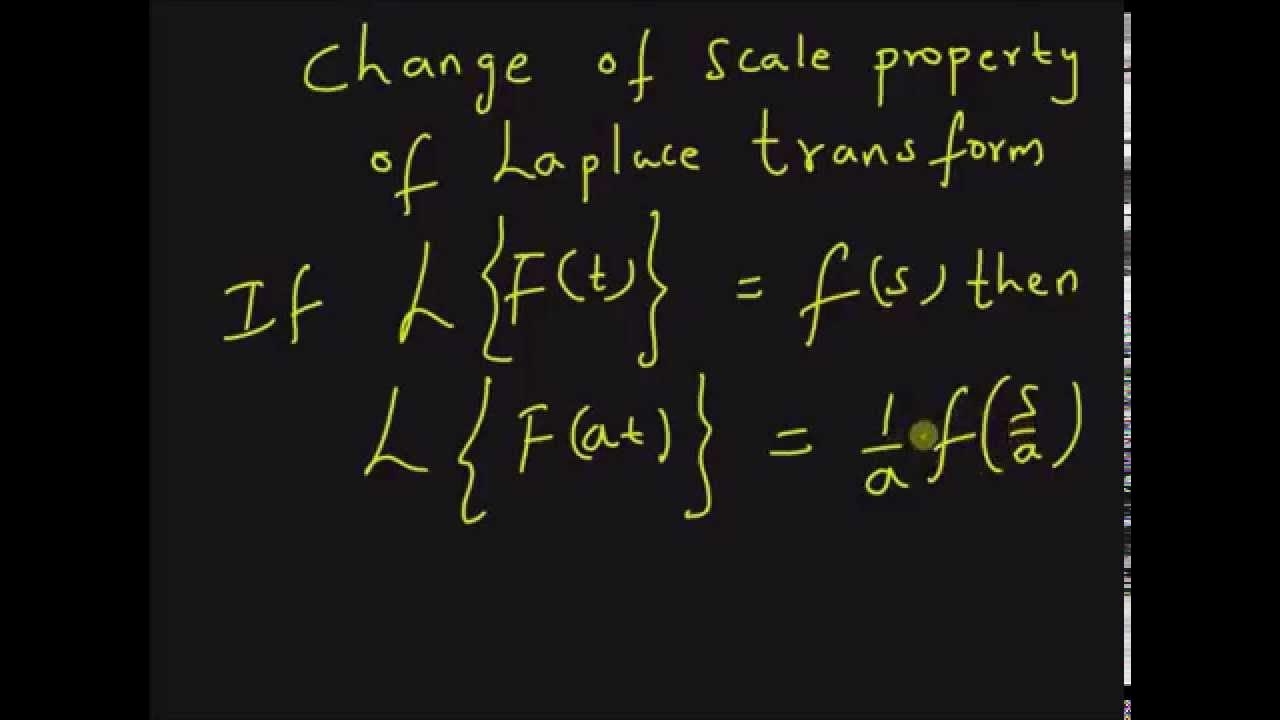 Change of scale property
of Laplace transform
If L{F(t)} = f(s) then
L{F(at)} = 1/a f(s/a)